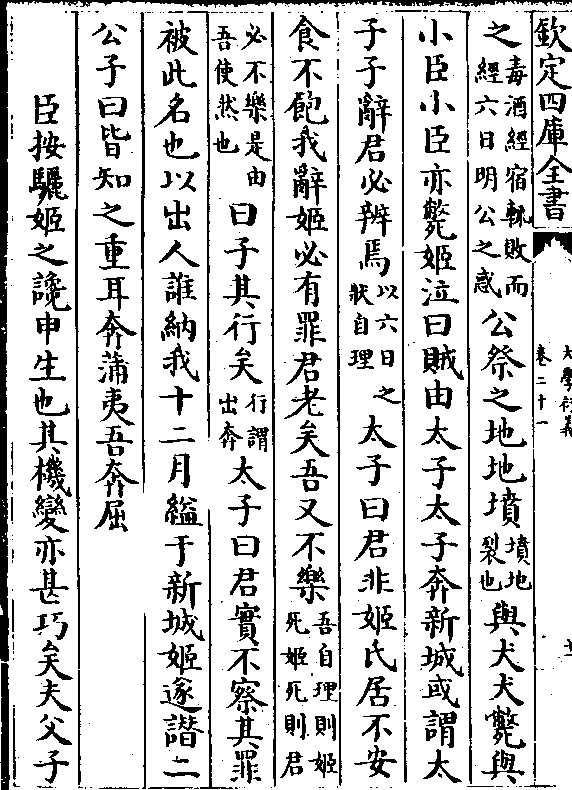 欽定四庫全書
大學衍義
卷二十一
之毒酒經宿輒敗而經六日明公之惑公祭之地地墳墳地裂也與犬犬斃與
小臣小臣亦斃姬泣曰賊由太子太子奔新城或謂太
子子辭君必辨焉以六日之狀自理太子曰君非姬氏居不安
食不飽我辭姬必有罪君老矣吾又不樂吾自理則姬死姬死則君
必不樂是由吾使然也曰子其行矣行謂出奔太子曰君實不察其罪
被此名也以出人誰納我十二月縊于新城姬遂譖二
公子曰皆知之重耳奔蒲夷吾奔屈
臣按驪姬之讒申生也其機變亦甚巧矣夫父子